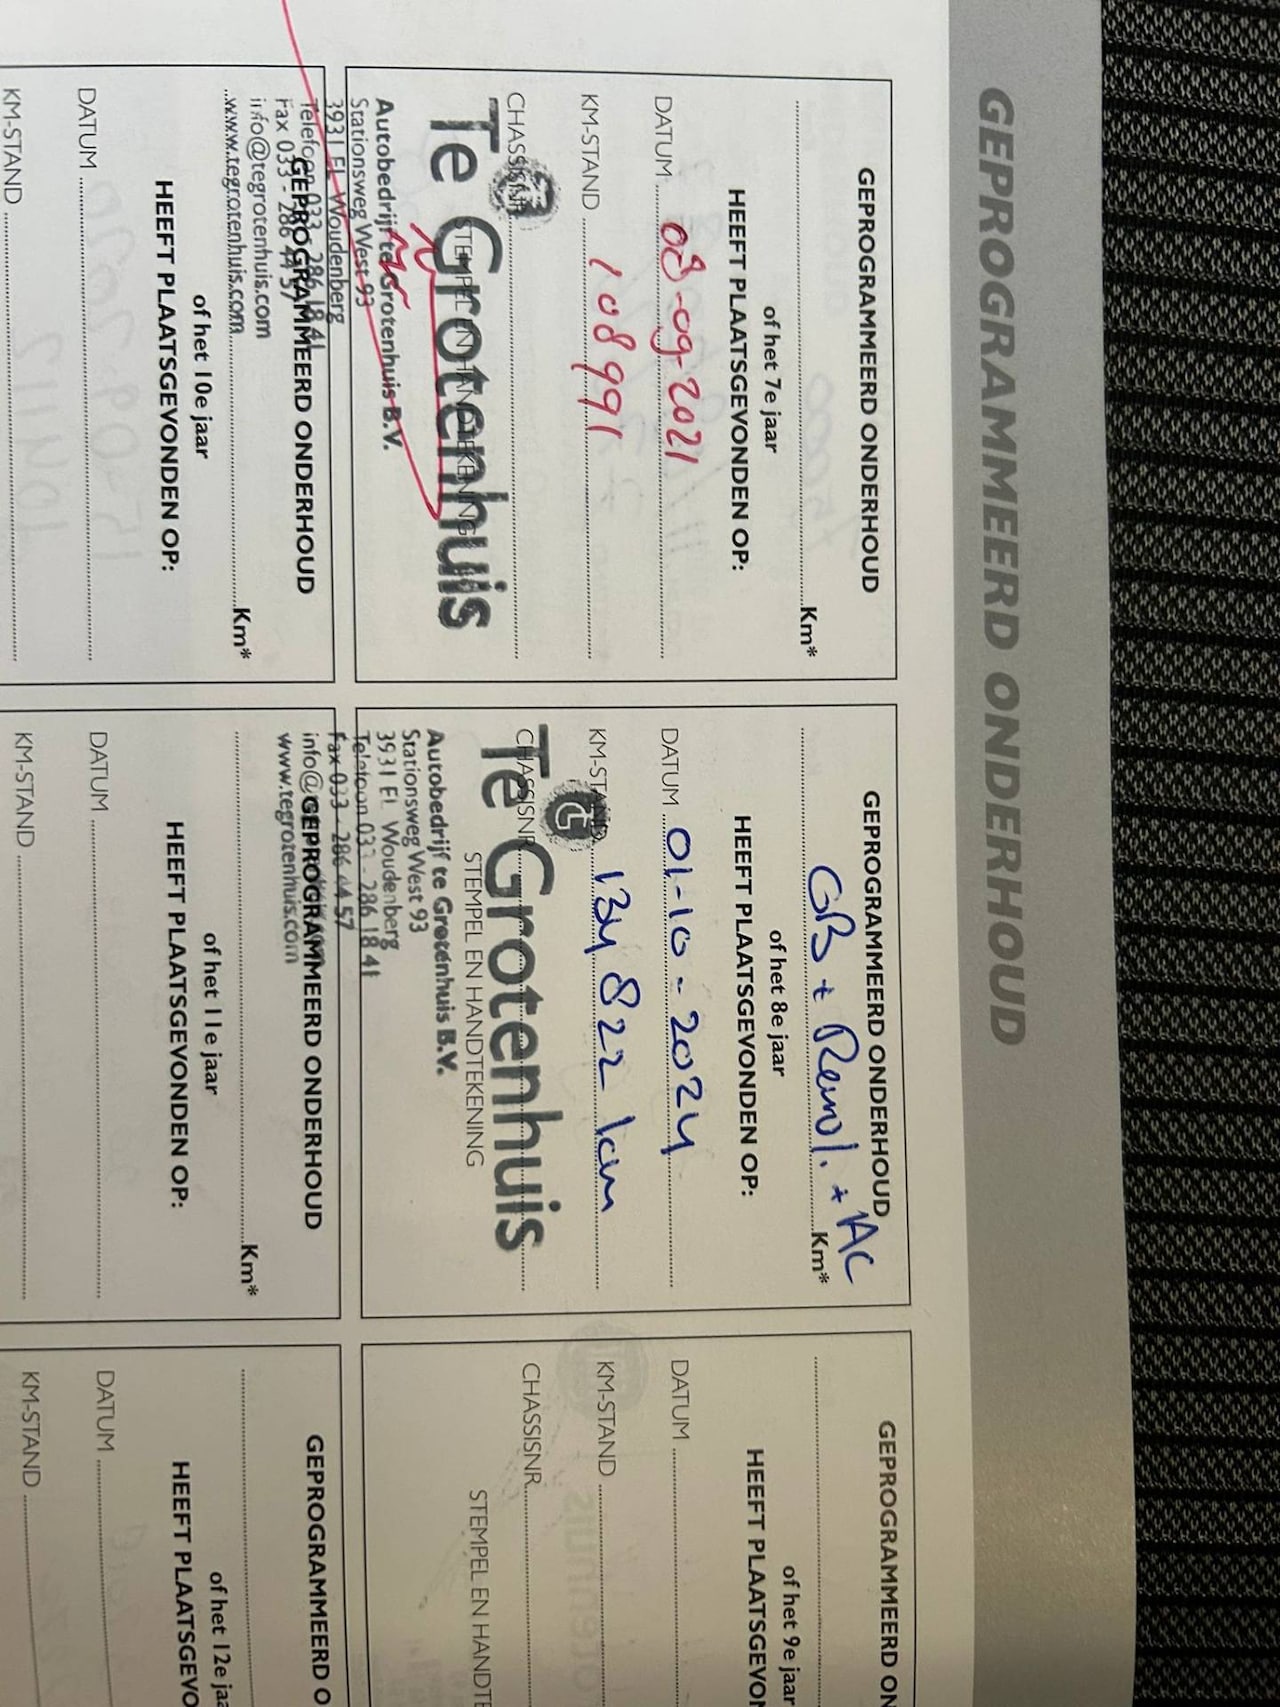 GEPROGRAMMEERD ONDERHOUD
GEPROGRAMMEERD ONDERHOUD
Km*
of het 7e jaar
HEEFT PLAATSGEVONDEN OP:
DATUM 08-09-2021
KM-STAND 108991
CHASSISNR.
Te Grotenhuis
STEMPEL EN HANDTEKENING
Autobedrijf te Grotenhuis B.V.
Stationsweg West 93
3931 EL Woudenberg
Telefoon 033 - 286 18 41
Fax 033 - 286 44 57
info@tegrotenhuis.com
www.tegrotenhuis.com
GEPROGRAMMEERD ONDERHOUD
GB + Remol. + AC
Km*
of het 8e jaar
HEEFT PLAATSGEVONDEN OP:
DATUM 01-10-2024
KM-STAND 134 822 km
CHASSISNR.
Te Grotenhuis
STEMPEL EN HANDTEKENING
Autobedrijf te Grotenhuis B.V.
Stationsweg West 93
3931 EL Woudenberg
Telefoon 033 - 286 18 41
Fax 033 - 286 44 57
www.tegrotenhuis.com
GEPROGRAMMEERD ON
of het 9e jaar
HEEFT PLAATSGEVON
DATUM
KM-STAND
CHASSISNR.
STEMPEL EN HANDTE
GEPROGRAMMEERD ONDERHOUD
Km*
of het 10e jaar
HEEFT PLAATSGEVONDEN OP:
DATUM
KM-STAND
GEPROGRAMMEERD ONDERHOUD
Km*
of het 11e jaar
HEEFT PLAATSGEVONDEN OP:
DATUM
KM-STAND
GEPROGRAMMEERD O
of het 12e jaa
HEEFT PLAATSGEVO
DATUM
KM-STAND